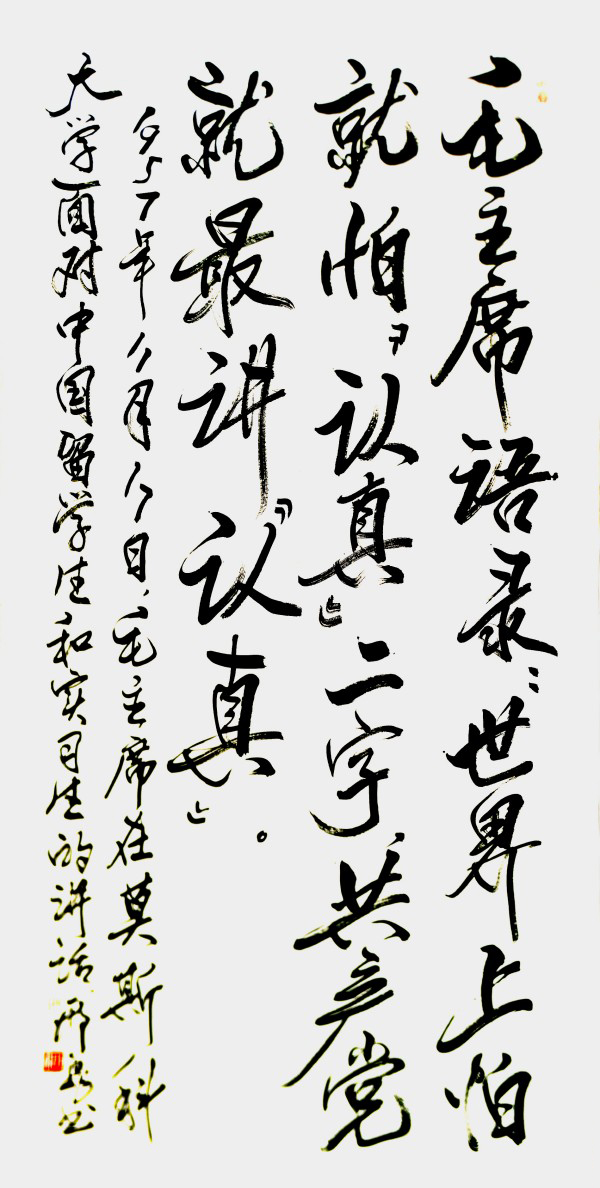 毛主席语录：世界上怕
就怕「认真」二字共产党
就最讲「认真」。
九五七年八月八日，毛主席在莫斯科
大学面对中国留学生和实习生的讲话